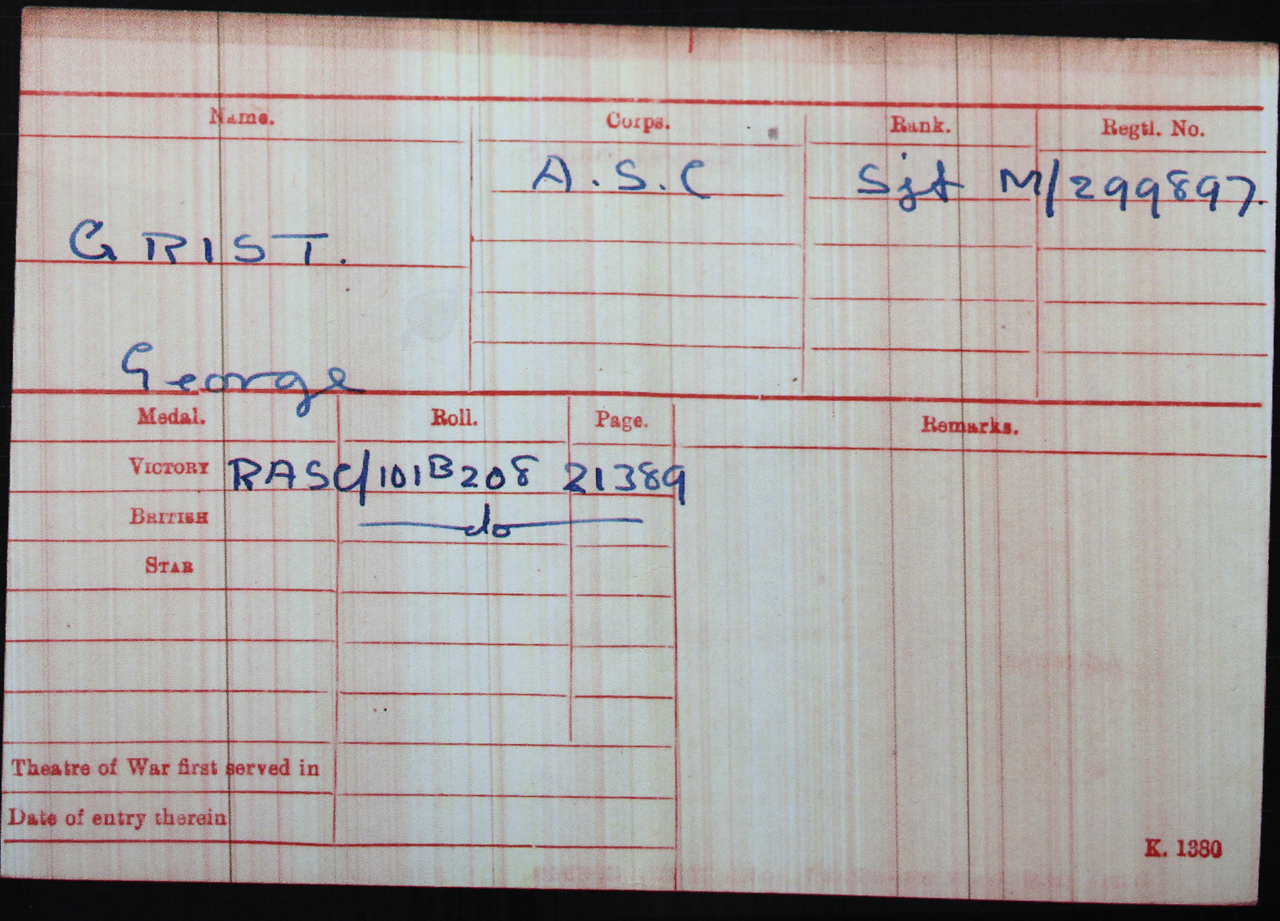 Name. Corps. Rank. Regtl. No.
A.S.C Sjt M/299897.
GRIST.
George
Medal. Roll. Page. Remarks.
VICTORY RASC/101B208 21389
BRITISH do
STAR
Theatre of War first served in
Date of entry therein
K. 1380